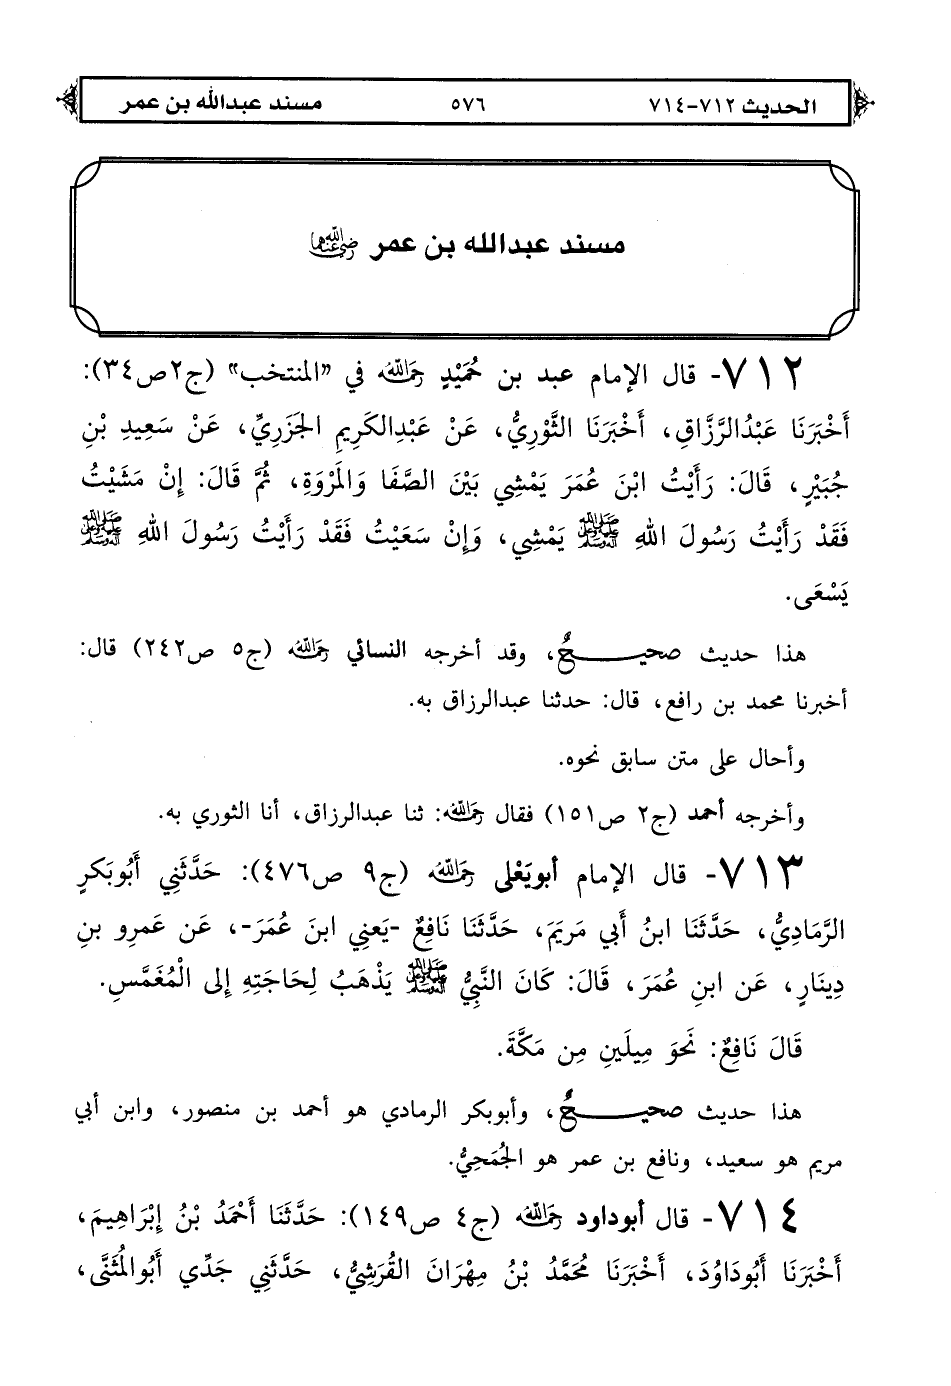 الحديث ٧١٢-٧١٤ ٥٧٦ مسند عبدالله بن عمر
مسند عبدالله بن عمر رضي الله عنهما
٧١٢- قال الإمام عبد بن حُمَيْدٍ رحمه الله في «المنتخب» (ج٢ص٣٤):
أَخْبَرَنَا عَبْدُالرَّزَّاقِ، أَخْبَرَنَا الثَّوْرِيُّ، عَنْ عَبْدِالكَرِيمِ الجَزَرِيِّ، عَنْ سَعِيدِ بْنِ
جُبَيْرٍ، قَالَ: رَأَيْتُ ابْنَ عُمَرَ يَمْشِي بَيْنَ الصَّفَا وَالمَرْوَةِ، ثُمَّ قَالَ: إِنْ مَشَيْتُ
فَقَدْ رَأَيْتُ رَسُولَ اللهِ ﷺ يَمْشِي، وَإِنْ سَعَيْتُ فَقَدْ رَأَيْتُ رَسُولَ اللهِ ﷺ
يَسْعَى.
هذا حديث صحيـــــحٌ، وقد أخرجه النسائي رحمه الله (ج٥ ص٢٤٢) قال:
أخبرنا محمد بن رافع، قال: حدثنا عبدالرزاق به.
وأحال على متن سابق نحوه.
وأخرجه أحمد (ج٢ ص١٥١) فقال رحمه الله: ثنا عبدالرزاق، أنا الثوري به.
٧١٣- قال الإمام أبويَعْلى رحمه الله (ج٩ ص٤٧٦): حَدَّثَنِي أَبُوبَكرٍ
الرَّمَادِيُّ، حَدَّثَنَا ابنُ أَبي مَريَمَ، حَدَّثَنَا نَافِعٌ -يَعنِي ابنَ عُمَرَ-، عَن عَمرِو بنِ
دِينَارٍ، عَن ابنِ عُمَرَ، قَالَ: كَانَ النَّبِيُّ ﷺ يَذْهَبُ لِحَاجَتِهِ إِلى الْمُغَمَّسِ.
قَالَ نَافِعٌ: نَحوَ مِيلَينِ مِن مَكَّةَ.
هذا حديث صحيـــــحٌ، وأبوبكر الرمادي هو أحمد بن منصور، وابن أبي
مريم هو سعيد، ونافع بن عمر هو الجُمَحِيُّ.
٧١٤- قال أبوداود رحمه الله (ج٤ ص١٤٩): حَدَّثَنَا أَحْمَدُ بْنُ إِبْرَاهِيمَ،
أَخْبَرَنَا أَبُودَاوُدَ، أَخْبَرَنَا مُحَمَّدُ بْنُ مِهْرَانَ القُرَشِيُّ، حَدَّثَنِي جَدِّي أَبُوالمُثَنَّى،